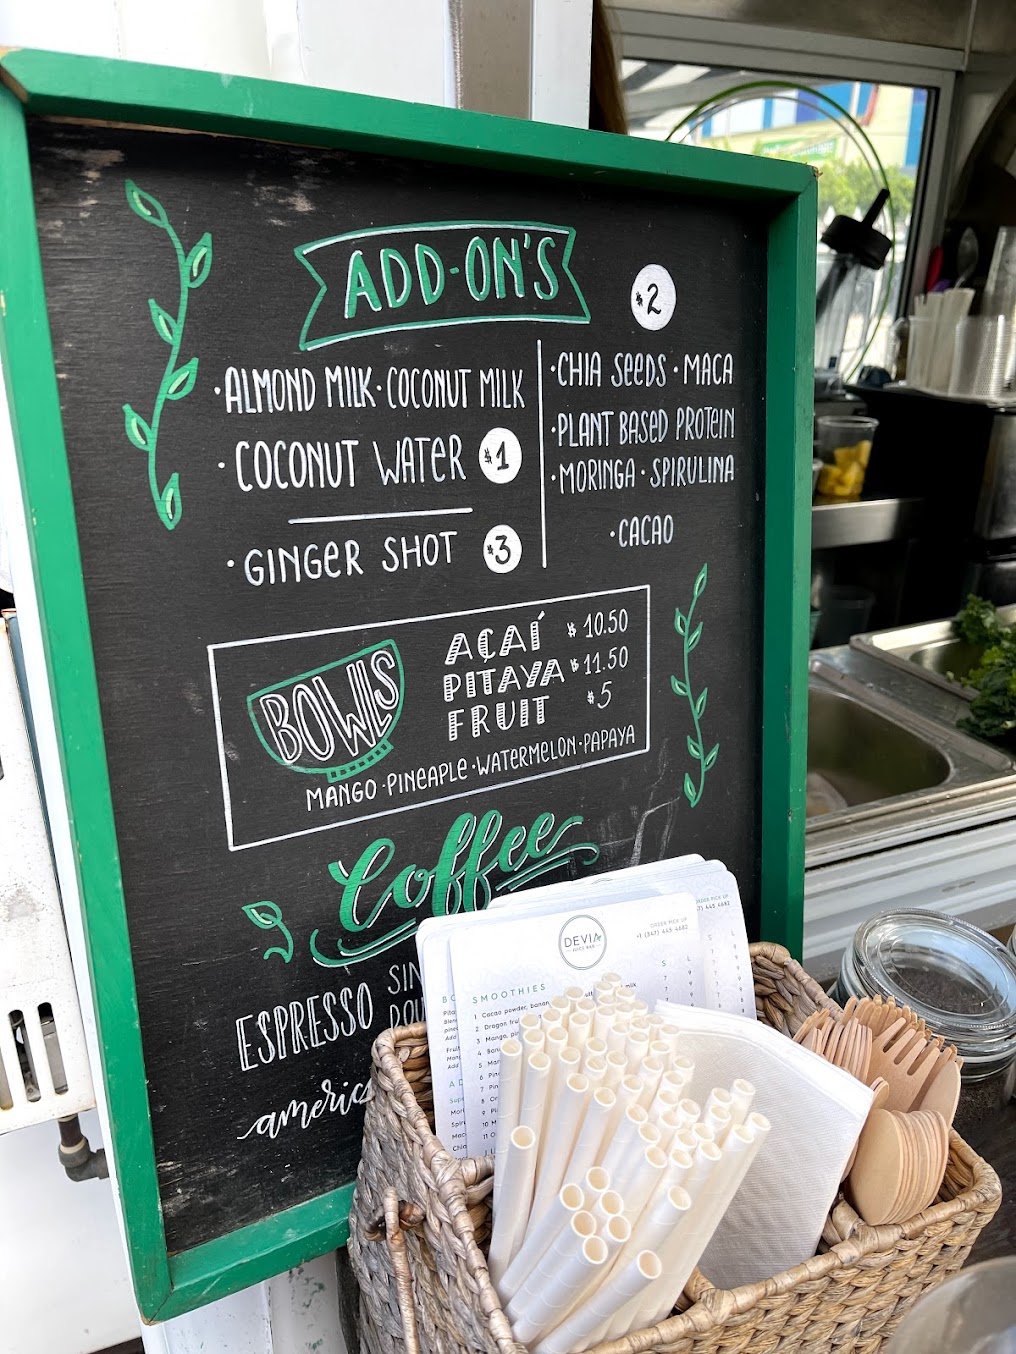 ADD-ON'S
$2
·ALMOND MILK·COCONUT MILK
·COCONUT WATER $1
·GINGER SHOT $3
·CHIA SEEDS·MACA
·PLANT BASED PROTEIN
·MORINGA·SPIRULINA
·CACAO
BOWLS
AÇAÍ $10.50
PITAYA $11.50
FRUIT $5
MANGO·PINEAPLE·WATERMELON·PAPAYA
Coffee
ESPRESSO
SIN
DOU
americ
DEVIA
JUICE BAR
ORDER PICK UP
+1 (347) 445 4682
SMOOTHIES
S L
1 Cacao powder, banan
2 Dragon fru
3 Mango, pin
4 Ban
5 Man
6 Pin
7 Pin
8 Or
9 Pl
10 M
11 O